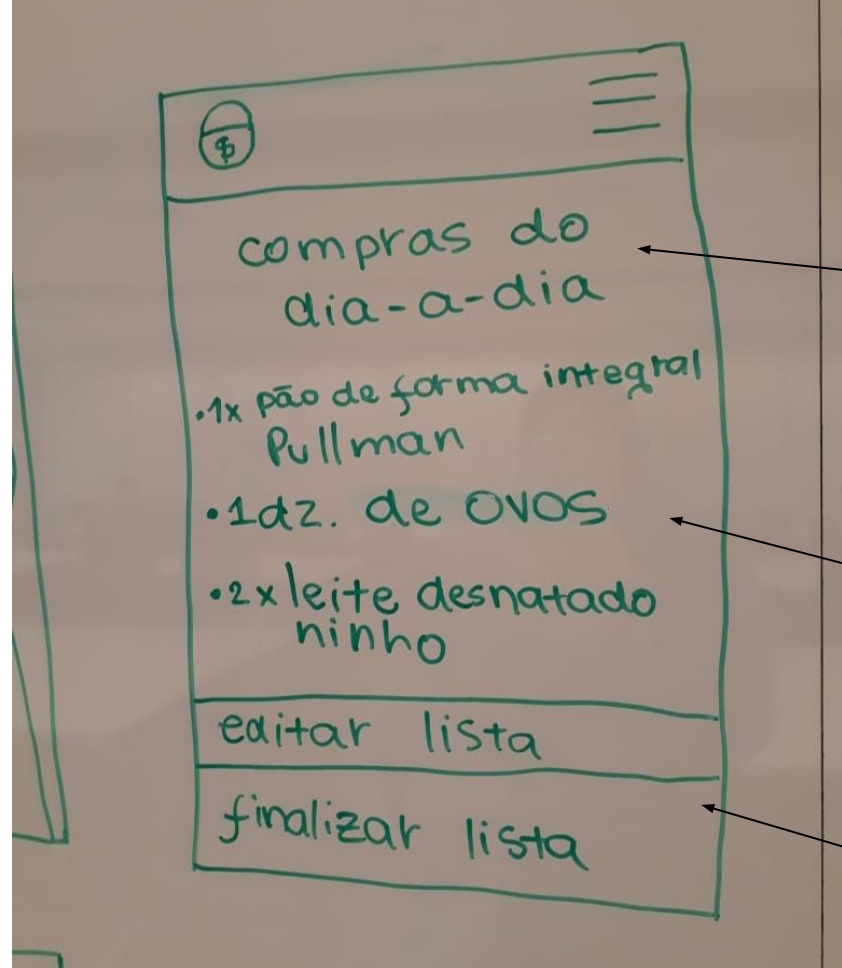 $
compras do
dia-a-dia
•1x pão de forma integral
Pullman
•1dz. de ovos
•2x leite desnatado
ninho
editar lista
finalizar lista